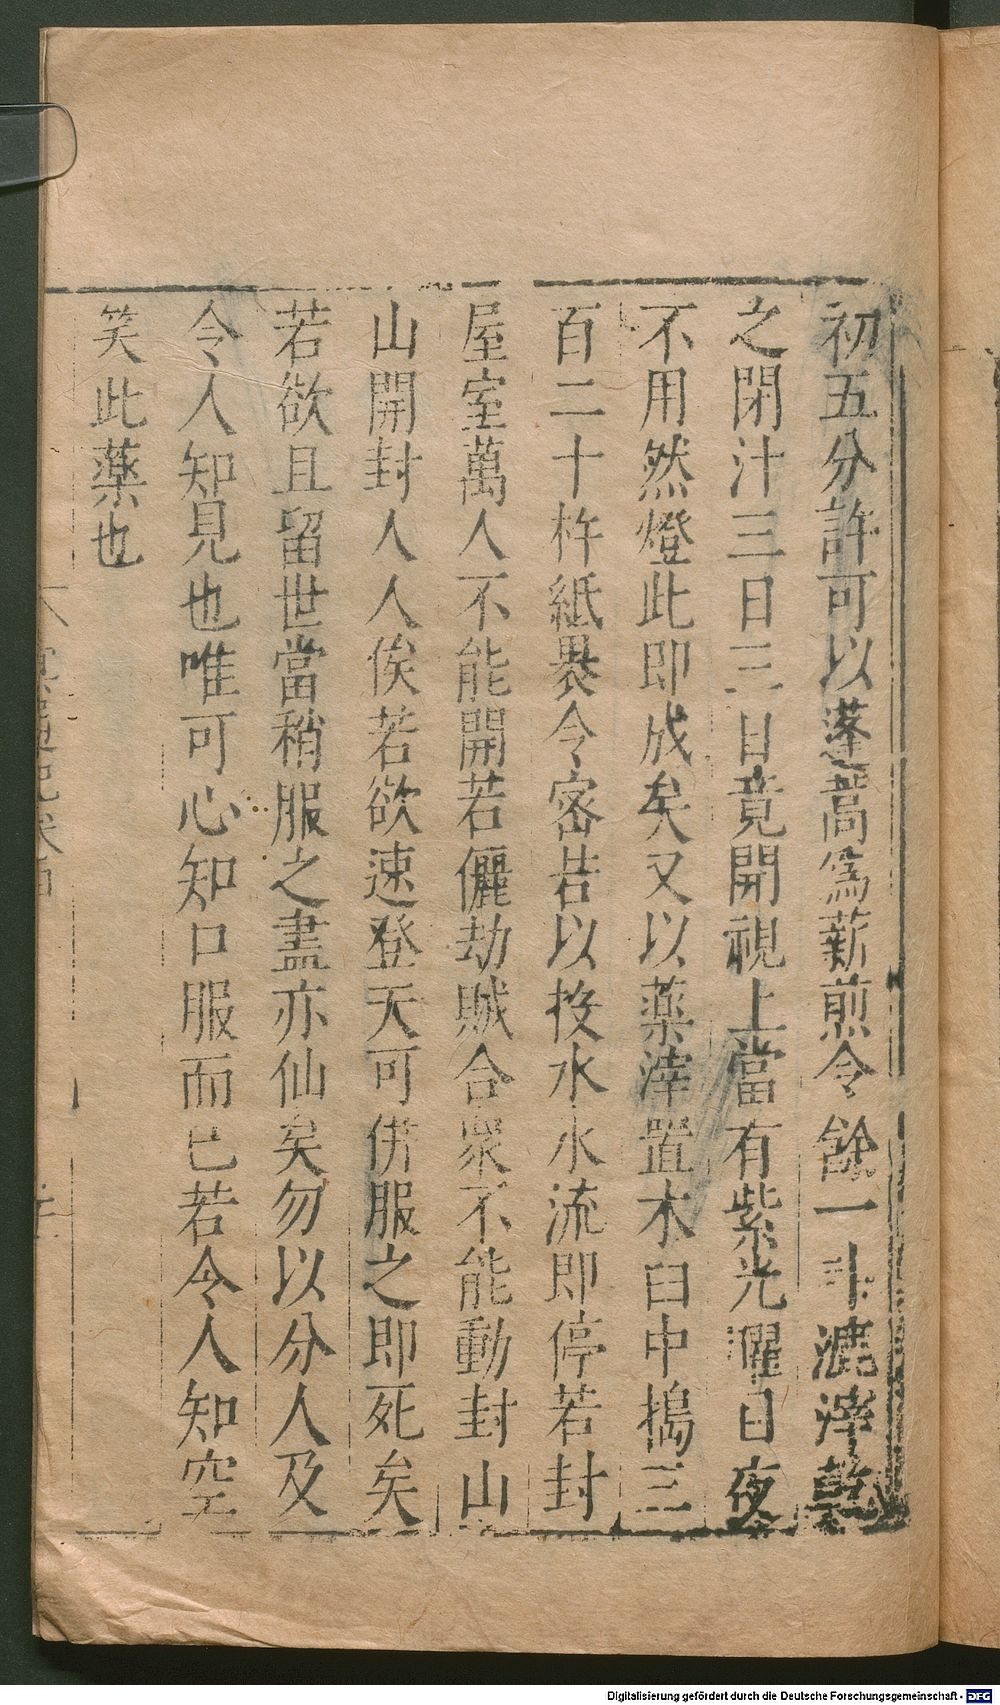 初五分許可以蓬蒿爲薪煎令餘一斗漉滓乾
之閉汁三日三日竟開視上當有紫光濯日夜
不用然燈此即成矣又以藥滓置木臼中搗三
百二十杵紙褁令密告以投水水流即停若封
屋室萬人不能開若儷劫賊合衆不能動封山
山開封人人俟若欲速登天可併服之即死矣
若欲且留世當稍服之盡亦仙矣勿以分人及
令人知見也唯可心知口服而已若令人知空
笑此藥也
Digitalisierung gefördert durch die Deutsche Forschungsgemeinschaft - DFG